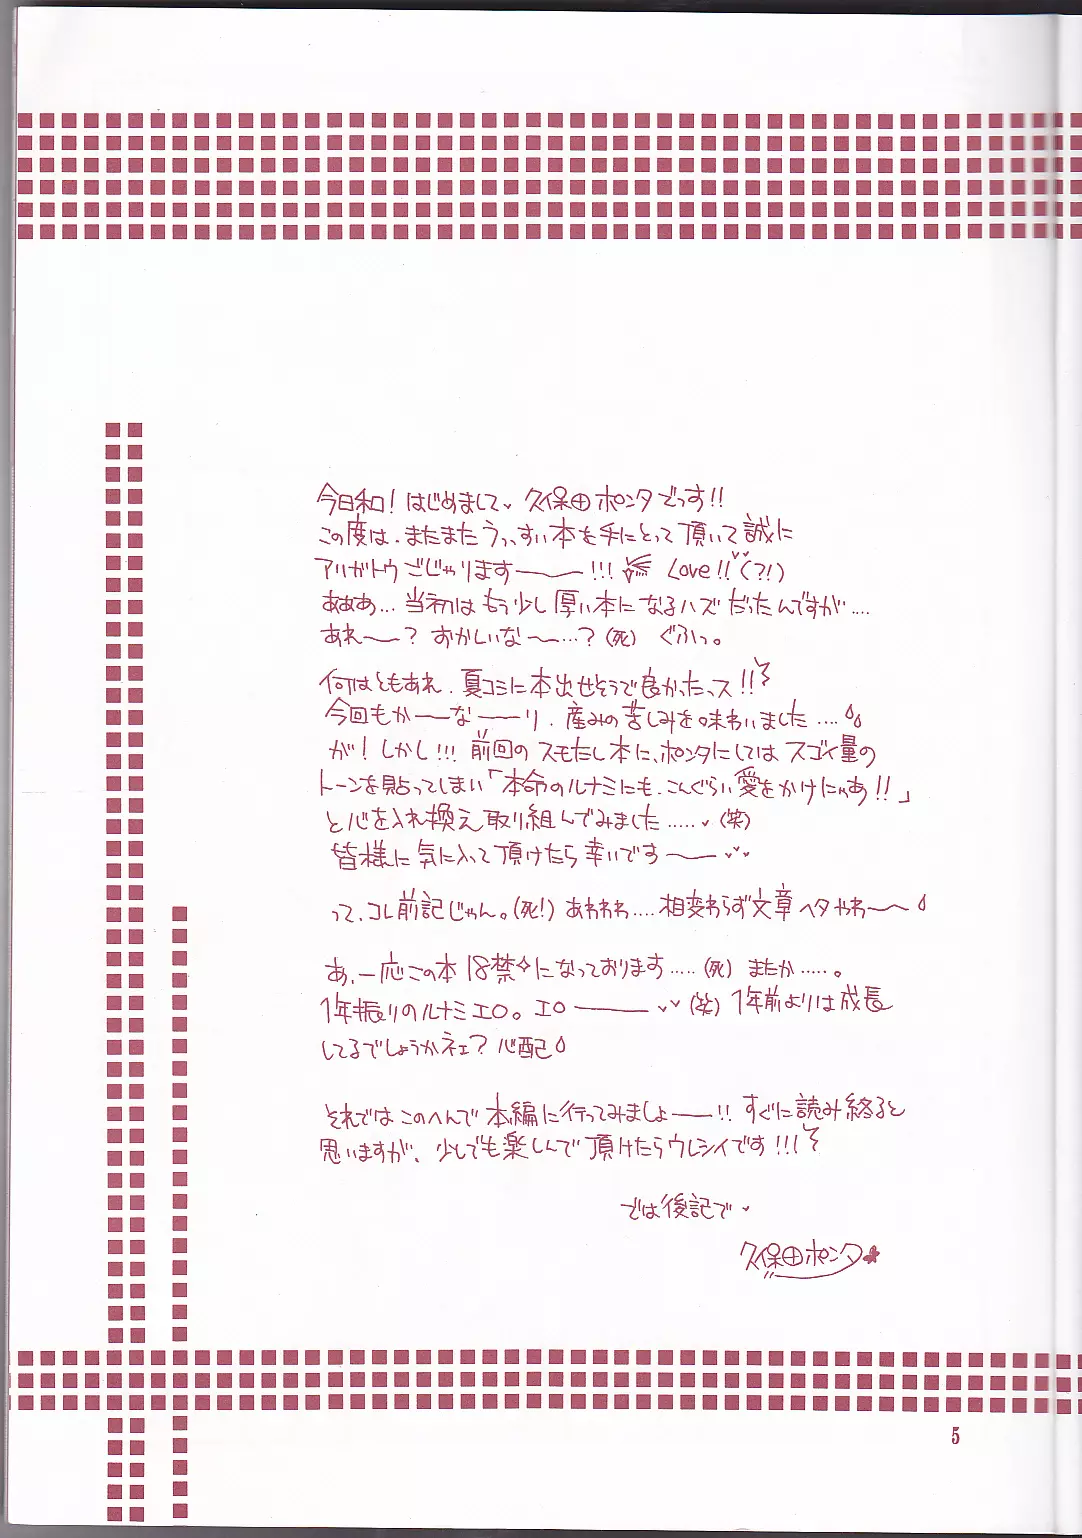 今日和！はじめまして♥ 久保田ポンタでっす!!
この度は、またまたうっっすい本を手にとって頂いて誠に
アリガトウごじゃりますーーー!!! Love!!♥(?!)
あああ…当初はもう少し厚い本になるハズだったんですが….
あれー〜？おかしいなー〜…？(死) ぐふっ。
何はともあれ、夏コミに本出せそうで良かったっス!!
今回もかーーなーーり、産みの苦しみを味わいました….
が！しかし!!! 前回のスモたし本に、ポンタにしてはスゴイ量の
トーンを貼ってしまい「本命のルナミにも、こんぐらい愛をかけにゃあ!!」
と心を入れ換え取り組んでみました…..♥(笑)
皆様に気に入って頂けたら幸いですーーー♥♥
って、コレ前記じゃん。(死!) あわわわ….相変わらず文章ヘタやわー〜
あ、一応この本18禁になっております…..(死) またか…..。
1年振りのルナミエロ。エローーー♥♥(笑) 1年前よりは成長
してるでしょうかネェ？心配
それではこのへんで本編に行ってみましょーー!! すぐに読み終ると
思いますが、少しでも楽しんで頂けたらウレシイです!!!
では後記で♥
久保田ポンタ
5